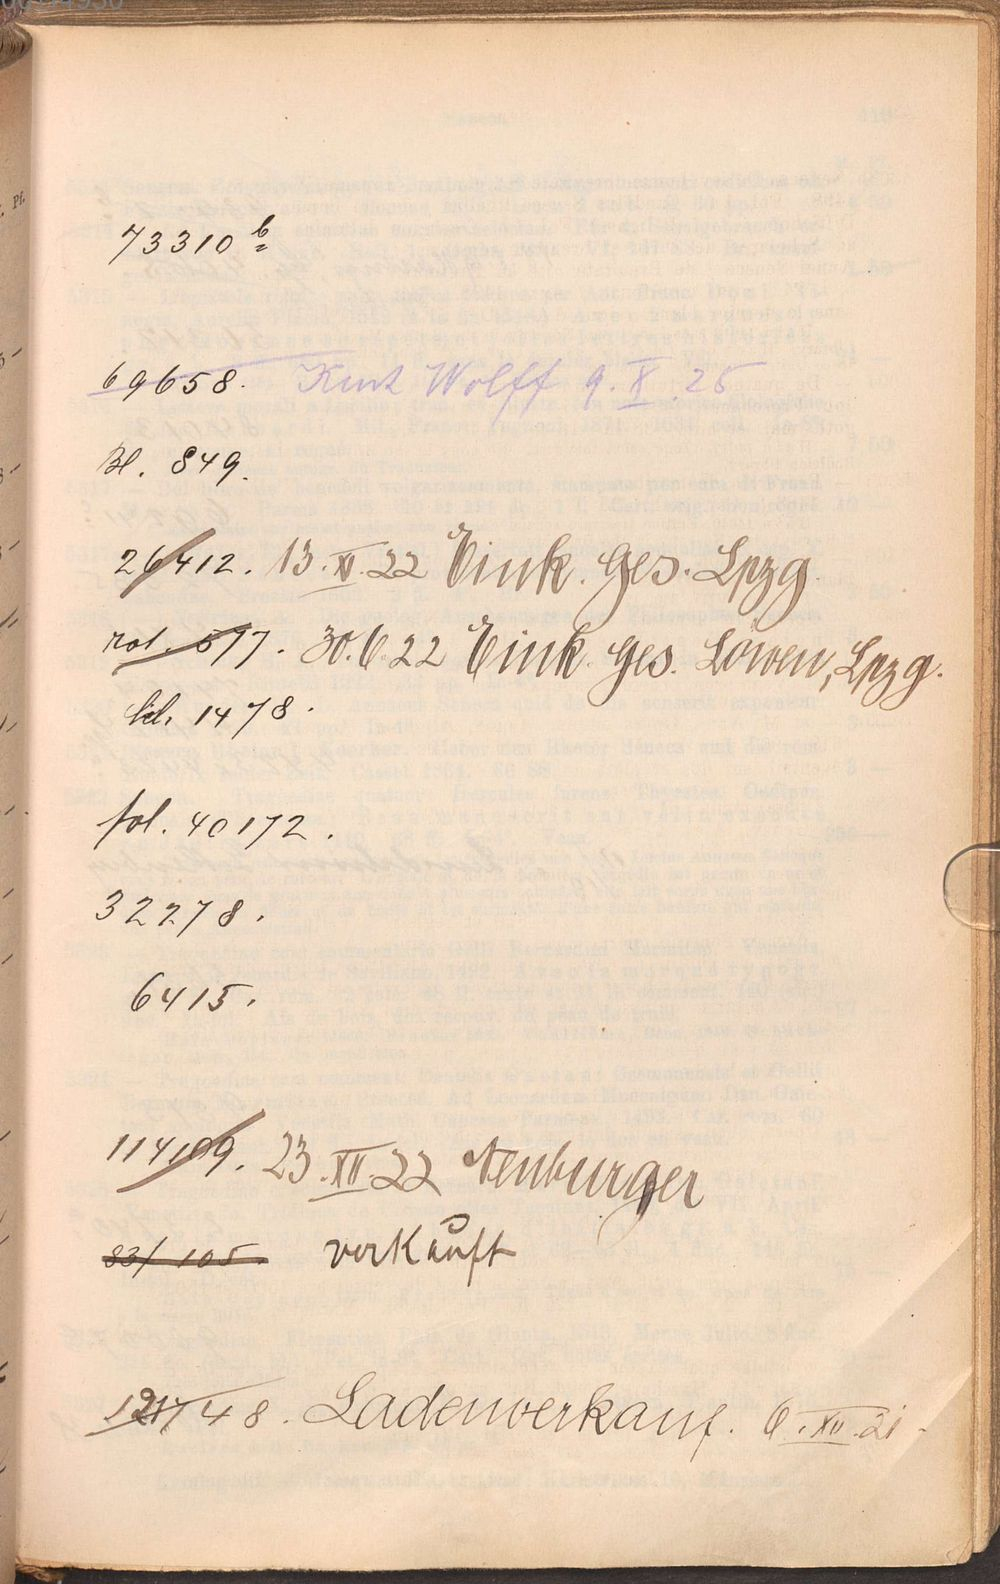 73310 b
69658. Kurt Wolff 9. X. 25
Bl. 849.
26412. 13. XI. 22 Eink. Ges. Lpzg.
rot. 577. 30. 6. 22 Eink. Ges. Löwen, Lpzg.
bl. 1478.
fol. 40172.
32278.
6415.
114109. 23. XII. 22
83/105 verkauft
48. Ladenverkauf. 6. XII. 21